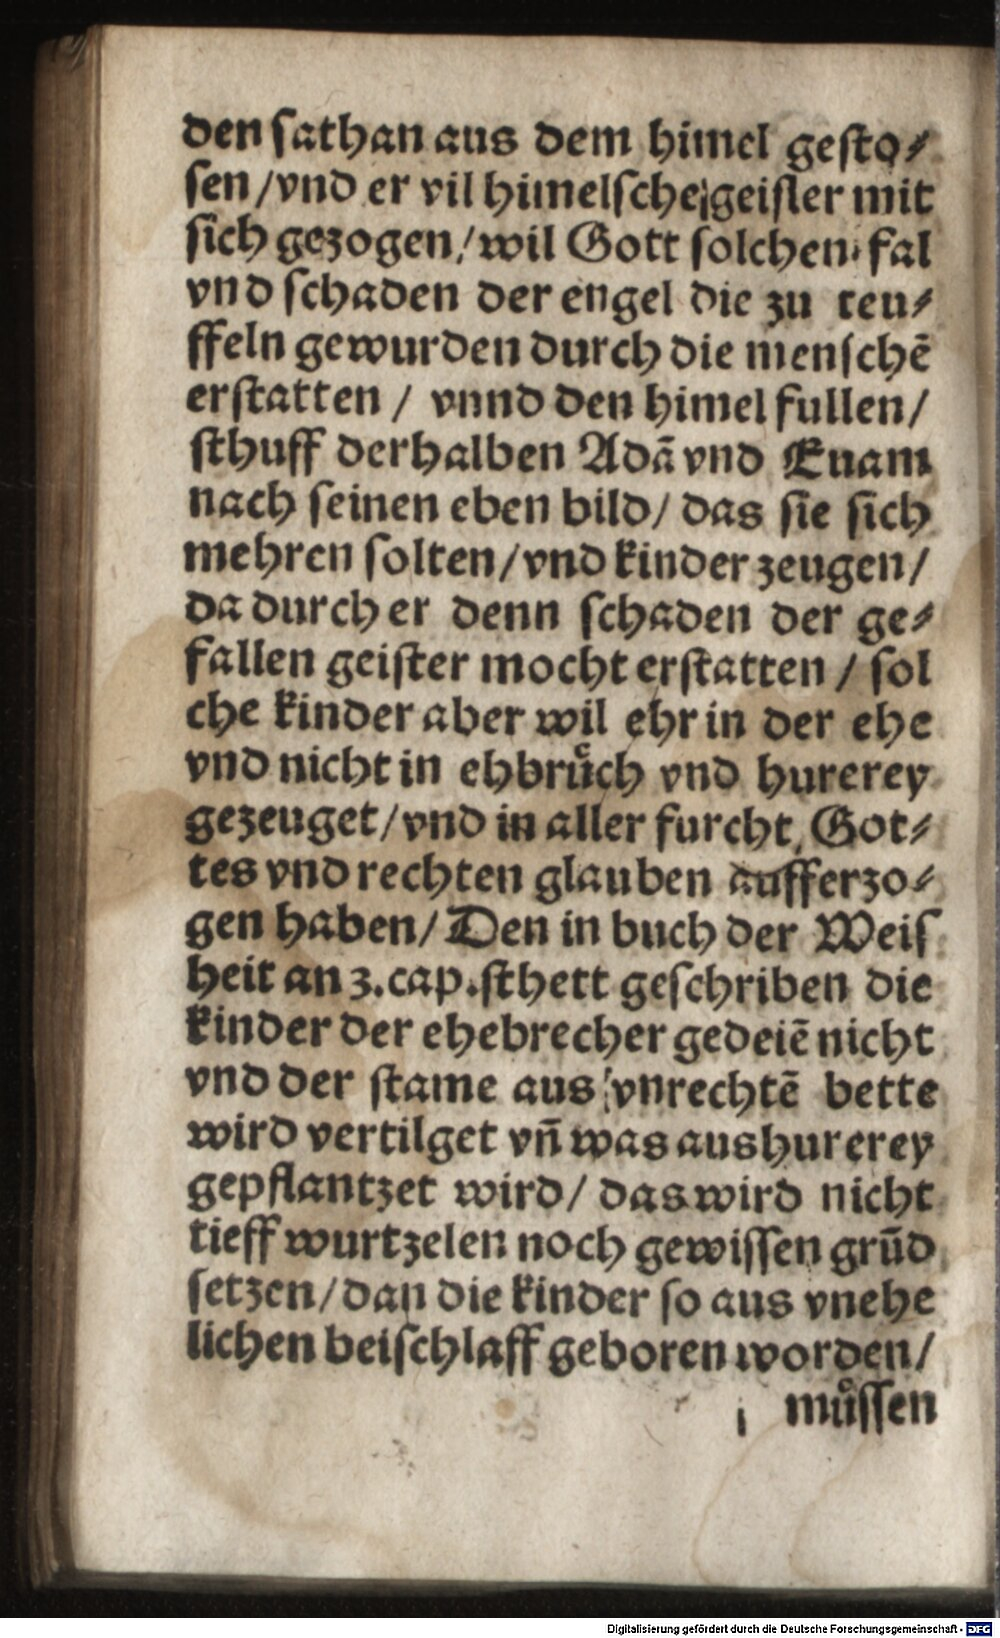 den sathan aus dem himel gesto⸗
sen /vnd er vil himelsche geister mit
sich gezogen / wil Gott solchen fal
vnd schaden der engel die zu teu⸗
ffeln gewurden durch die menschẽ
erstatten / vnnd den himel fullen/
sthuff derhalben Adã vnd Euam
nach seinen eben bild/ das sie sich
mehren solten/vnd kinder zeugen/
da durch er denn schaden der ge⸗
fallen geister mocht erstatten / sol
che kinder aber wil ehr in der ehe
vnd nicht in ehbruͤch vnd hurerey
gezeuget/vnd in aller furcht Got⸗
tes vnd rechten glauben aufferzo⸗
gen haben/ Den in buch der Weis
heit an 3.cap.sthett geschriben die
kinder der ehebrecher gedeiẽ nicht
vnd der stame aus vnrechtẽ bette
wird vertilget vñ was aus hurerey
gepflantzet wird/ das wird nicht
tieff wurtzelen noch gewissen grũd
setzen/dan die kinder so aus vnehe
lichen beischlaff geboren worden/
muͤssen
Digitalisierung gefördert durch die Deutsche Forschungsgemeinschaft - DFG